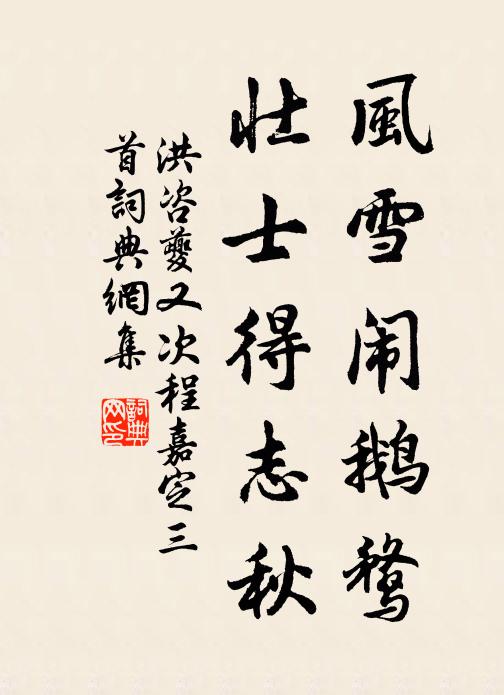 風雪闹鹅鹜
壮士得志秋
洪咨夔又次程嘉定三
首詞典網集
詞典
网印